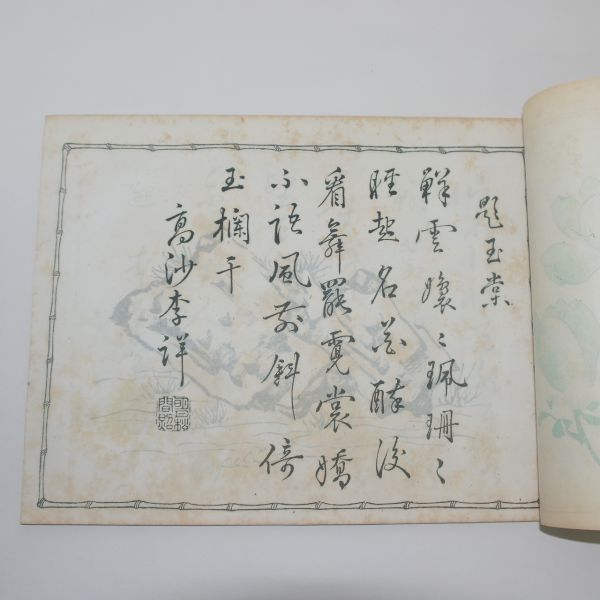 題玉棠
雲嬝〻珮珊〻
睡起名花醉後
看舞罷霓裳嬌
不語風前斜倚
玉欄干
高沙李詳